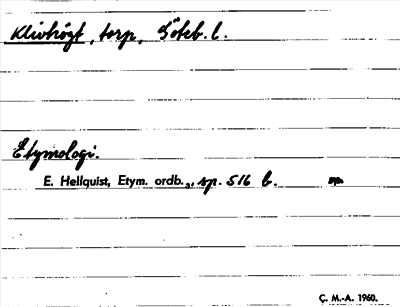 Klivhögt, torp, Göteb. l.
Etymologi.
E. Hellquist, Etym. ordb.3, sp. 516 b.
Ç. M.-A. 1960.